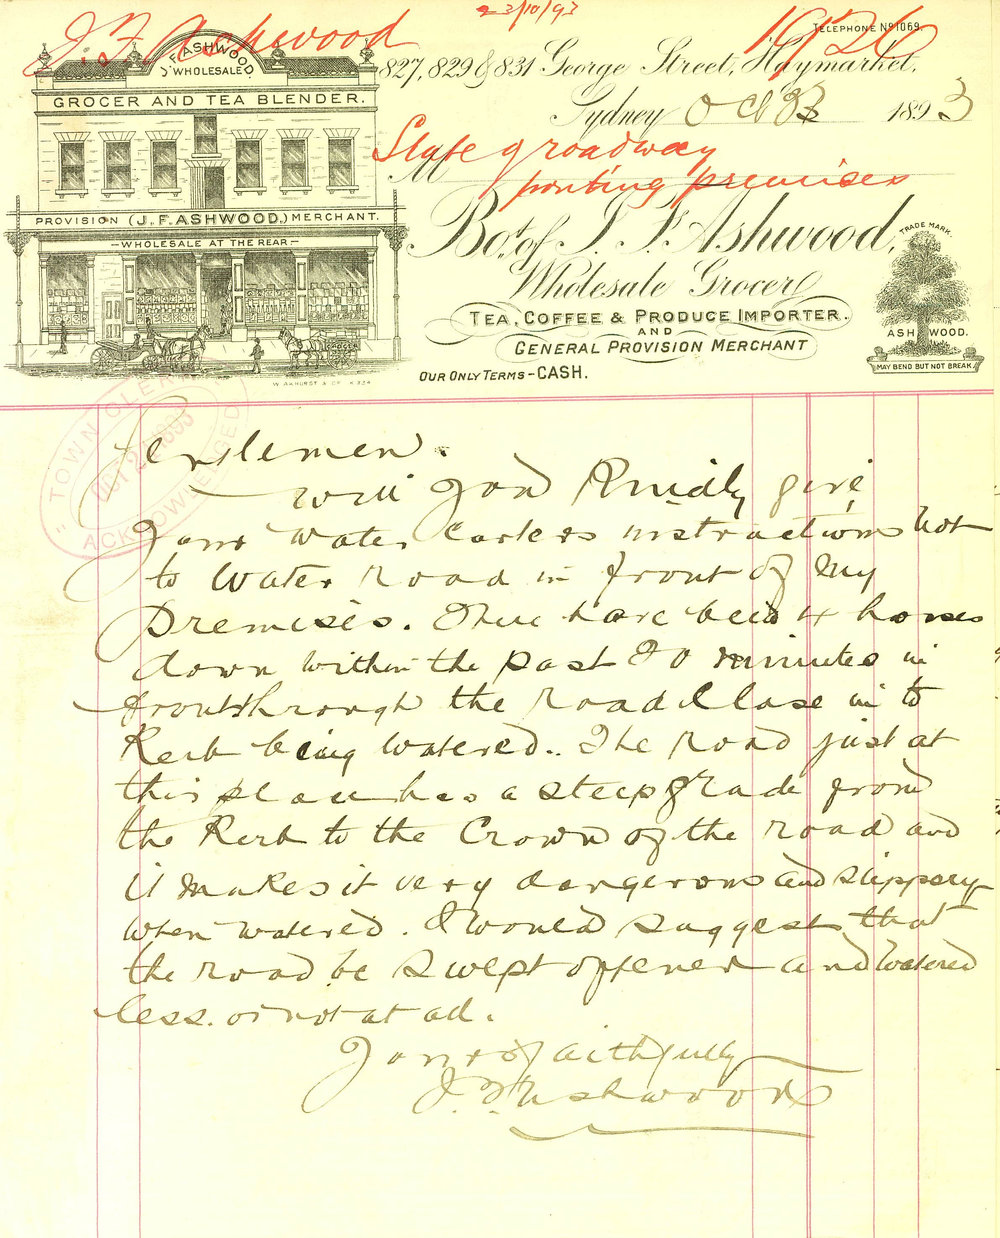 23/10/93
J. F. Ashwood
1926
TELEPHONE No 1069.
J. F. ASHWOOD
WHOLESALE
GROCER AND TEA BLENDER.
PROVISION (J. F. ASHWOOD,) MERCHANT.
-WHOLESALE AT THE REAR-
W. AKHURST & Co
827, 829 & 831 George Street, Haymarket,
Sydney Oct 23 1893
State of roadway
M
fronting premises
Bot. of J. F. Ashwood,
Wholesale Grocer
TEA, COFFEE & PRODUCE IMPORTER.
AND
GENERAL PROVISION MERCHANT
OUR ONLY TERMS - CASH.
TRADE MARK.
ASHWOOD.
MAY BEND BUT NOT BREAK
TOWN CLERK
OCT 24 1893
ACKNOWLEDGED
Gentlemen.
Will you Kindly give
your Water Carters instructions Not
to Water Road in front of My
Premises. There have been 4 horses
down within the past 20 minutes in
front through the Road Close in to
Kerb being Watered.. The Road just at
this place has a steep grade from
the Kerb to the Crown of the road and
it makes it very dangerous and slippery
when watered. I would suggest that
the road be swept offener and Watered
less. or not at al.
Yours faithfully
J. F. Ashwood